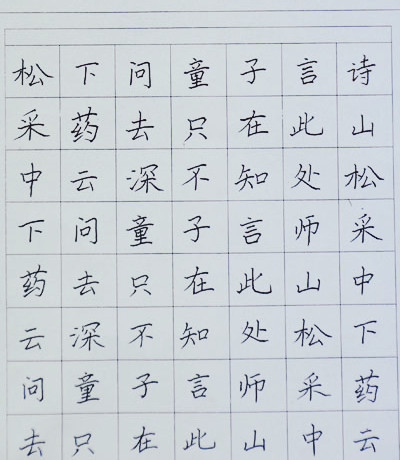 松下问童子言诗
采药去只在此山
中云深不知处松
下问童子言师采
药去只在此山中
云深不知处松下
问童子言师采药
去只在此山中云